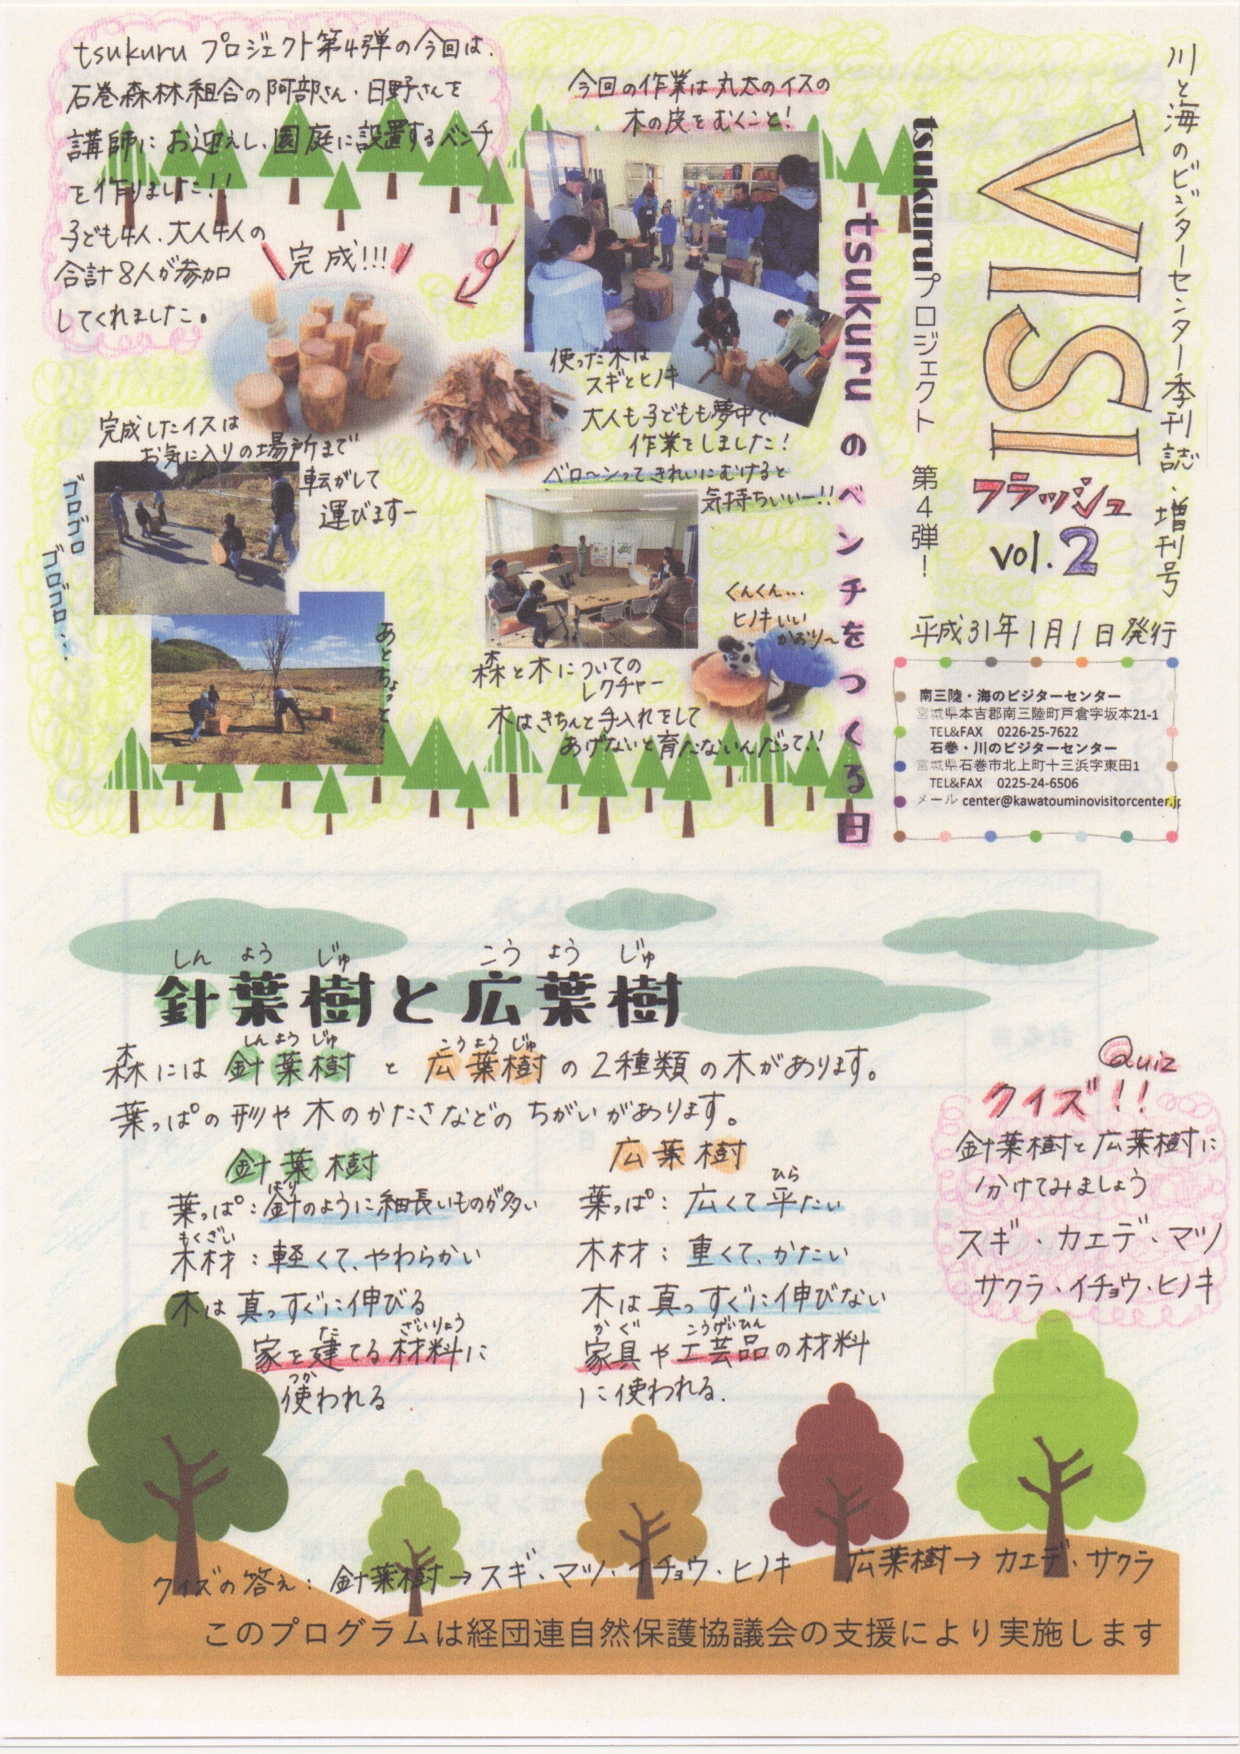 川と海のビジターセンター季刊誌・増刊号
VISI
フラッシュ
vol.2
平成31年1月1日発行
南三陸・海のビジターセンター
宮城県本吉郡南三陸町戸倉字坂本21-1
TEL&FAX　0226-25-7622
石巻・川のビジターセンター
宮城県石巻市北上町十三浜字東田1
TEL&FAX　0225-24-6506
メール center@kawatouminovisitorcenter.jp
tsukuruプロジェクト 第4弾！
tsukuruのベンチをつくる日
tsukuru プロジェクト第4弾の今回は、
石巻森林組合の阿部さん・日野さんを
講師にお迎えし、園庭に設置するベンチ
を作りました!!
子ども4人、大人4人の
合計8人が参加
してくれました。
今回の作業は丸太のイスの
木の皮をむくこと!
完成!!!
使った木は
スギとヒノキ
大人も子どもも夢中で
作業をしました!
ベロ〜ンってきれいにむけると
気持ちいいー!!
完成したイスは
お気に入りの場所まで
転がして
運びますー
ゴロゴロ
ゴロゴロ…
あとちょっと
くんくん…
ヒノキいい
かおり〜
森と木についての
レクチャー
木はきちんと手入れをして
あげないと育たないんだって!!
しん よう じゅ こう よう じゅ
針葉樹と広葉樹
しん よう じゅ こう よう じゅ
森には針葉樹と広葉樹の2種類の木があります。
葉っぱの形や木のかたさなどのちがいがあります。
針葉樹
はり
葉っぱ：針のように細長いものが多い
もくざい
木材：軽くて、やわらかい
木は真っすぐに伸びる
た ざいりょう
家を建てる材料に
つか
使われる
広葉樹
ひら
葉っぱ：広くて平たい
木材：重くて、かたい
木は真っすぐに伸びない
かぐ こうげいひん
家具や工芸品の材料
に使われる.
Quiz
クイズ!!
針葉樹と広葉樹に
分けてみましょう
スギ・カエデ・マツ
サクラ・イチョウ・ヒノキ
クイズの答え：針葉樹→スギ・マツ・イチョウ・ヒノキ　広葉樹→カエデ・サクラ
このプログラムは経団連自然保護協議会の支援により実施します